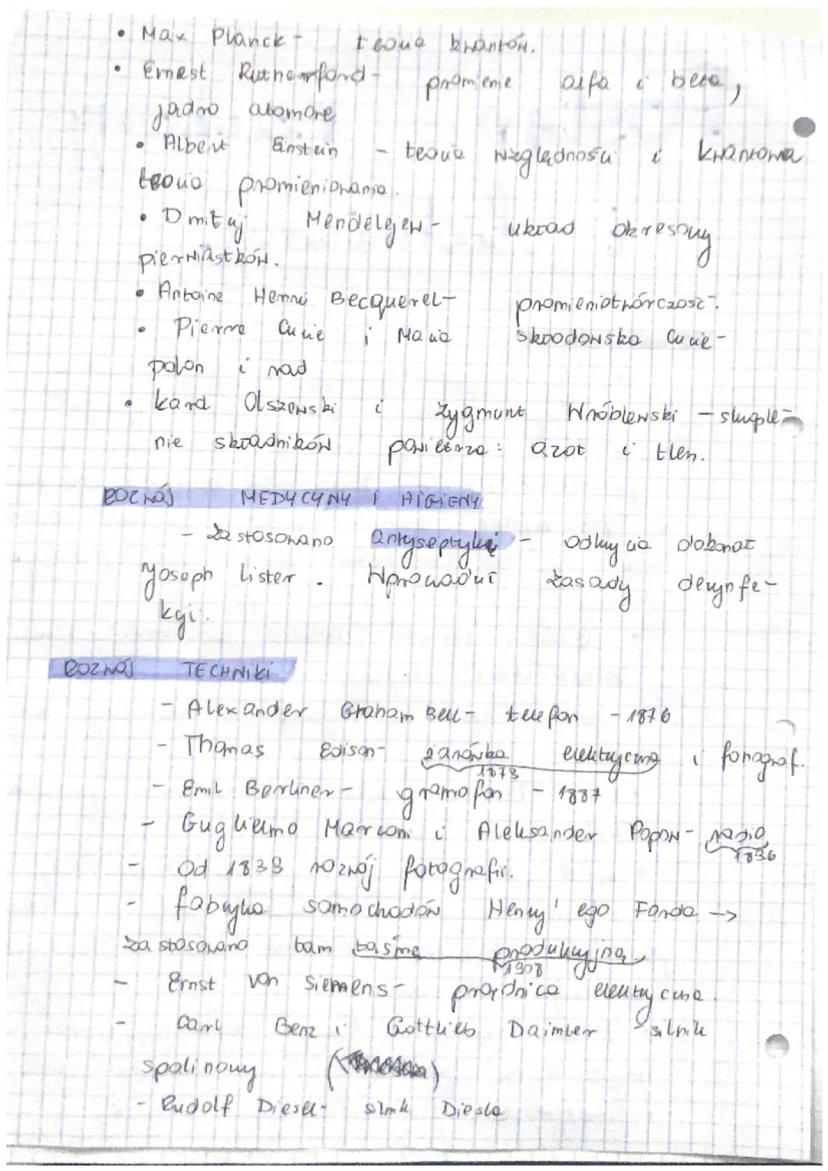 • Max Planck - teoria kwantów.
• Ernest Rutherford - promienie alfa i beta,
jądro atomowe
• Albert Einstein - teoria względności i kwantowa
teoria promieniowania.
• Dmitrij Mendelejew - układ okresowy
pierwiastków.
• Antoine Henri Becquerel - promieniotwórczość.
• Pierre Curie i Maria Skłodowska Curie -
polon i rad
• Karol Olszewski i Zygmunt Wróblewski - skrople-
nie składników powietrza: azot i tlen.
ROZWÓJ MEDYCYNY I HIGIENY
- Zastosowano antyseptykę - odkrycia dokonał
Joseph Lister. Wprowadził zasady dezynfe-
kcji.
ROZWÓJ TECHNIKI
- Alexander Graham Bell - telefon - 1876
- Thomas Edison - żarówka elektryczna i fonograf.
1879
- Emil Berliner - gramofon - 1887
- Guglielmo Marconi i Aleksander Popow - radio
1896
- Od 1839 rozwój fotografii.
- fabryka samochodów Henry'ego Forda →
zastosowano tam taśmę produkcyjną
1908
- Ernst von Siemens - prądnica elektryczna.
- Carl Benz i Gottlieb Daimler silnik
spalinowy
- Rudolf Diesel - silnik Diesla